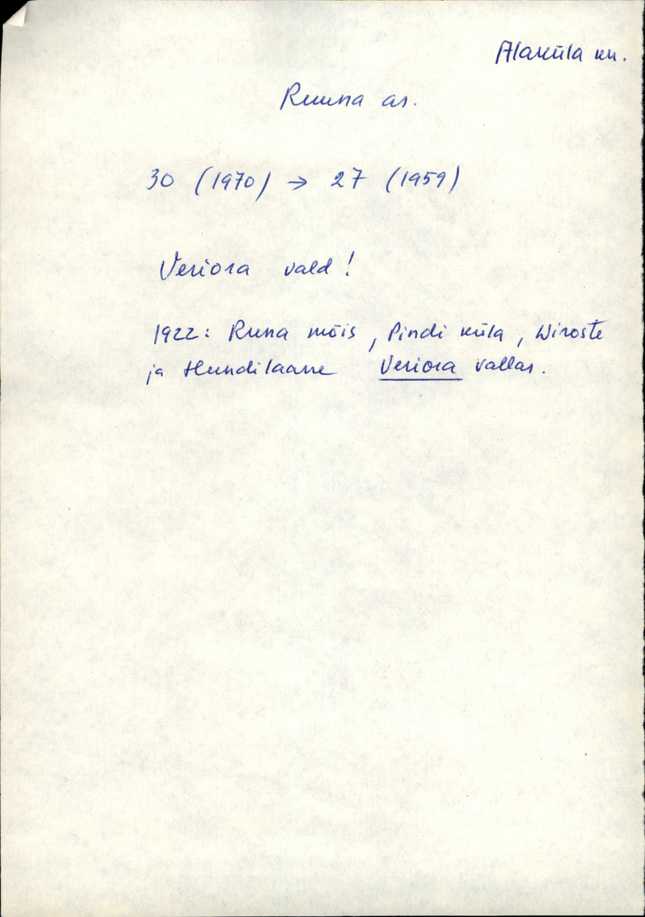 Alaküla kn.
Ruuna as.
30 (1970) → 27 (1959)
Veriora vald!
1922: Runa mõis, Pindi küla, Wiroste
ja Hundilaane Veriora vallas.